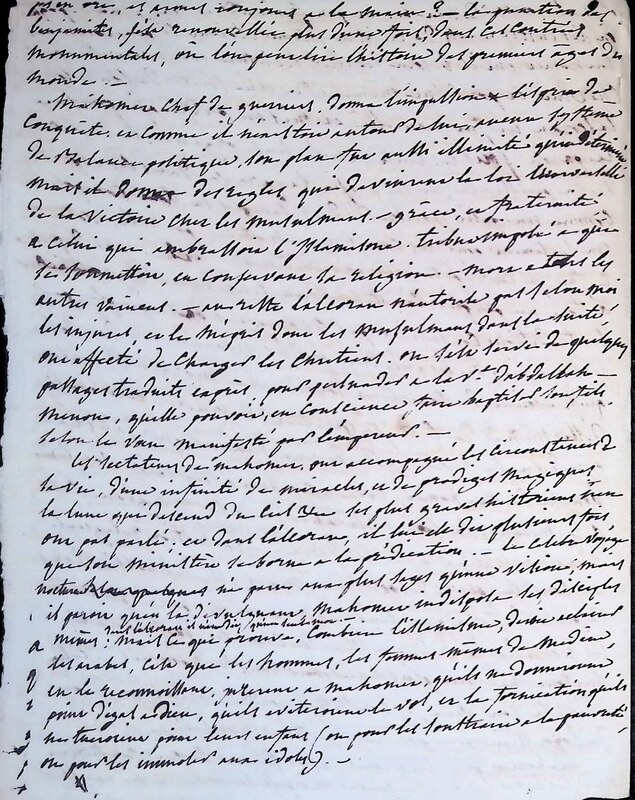 et armes toujours a la main? — la question des
bayonnettes, s'est renouvellée plus d'une fois, dans les contrées
monumentales, ou l'on penetre l'histoire des premiers ages du
monde. —
Mahomet chef de guerriers, donna l'impulsion l'esprit de
Conquête. et comme il n'existoit autour de lui, aucun système
de Balance politique, son plan fut aussi illimité qu'indéterminé
mais il donna des regles, qui devinrent la loi universelle
de la Victoire chez les musulmans. — grace, et fraternité
a celui qui embrassoit l'Islamisme. tribut imposé a qui
se soumettroit, en conservant sa religion. — mort a tous les
autres vaincus. — au reste l'alcoran n'autorise pas selon moi
les injures, et le mépris dont les Musulmans dans la suite
ont affecté de charger les Chretiens. on s'est servi de quelques
passages traduits exprès, pour persuader a la v.e d'abdallah —
menou, qu'elle pouvoit, en conscience faire baptiser son fils,
selon le vœu manifesté par l'empereur. —
Les sectateurs de mahomet, ont accompagné les circonstances de
sa vie, d'une infinité de miracles, et de prodiges magiques
la lune qui descend du Ciel les plus graves historiens n'en
ont pas parlé. et dans l'alcoran, il lui est dit plusieurs fois
que son Ministère se borne a la prédication. — le celebre Voyage
nocturne ne parut aux plus sages qu'une vision, mais
il paroit qu'en la divulguant, Mahomet indisposa les disciples
mêmes.
Mais ce qui prouve, combien l'Islamisme, dut eclairer
les arabes, c'est que les hommes, les femmes mêmes de Medine,
en le reconnoissant, jurerent a mahomet, qu'ils ne donneroient
point d'égal a dieu, qu'ils eviteroient le vol, et la fornication qu'ils
ne tueroient point leurs enfans (ou pour les soustraire a la pauvreté,
ou pour les immoler aux idoles). —